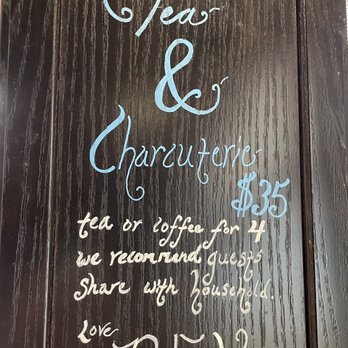 Tea
&
Charcuterie
$35
tea or coffee for 4
we recommend guests
share with household.
Love